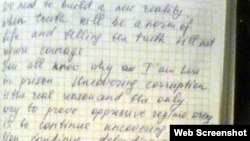 we need to build a new reality
when truth will be a norm of
life and telling the truth will not
require courage
You all know why am I am here
in prison Uncovering corruption
is the real reason and the only
way to prove oppressive regime wrong
is to continue uncovering
Web Screenshot